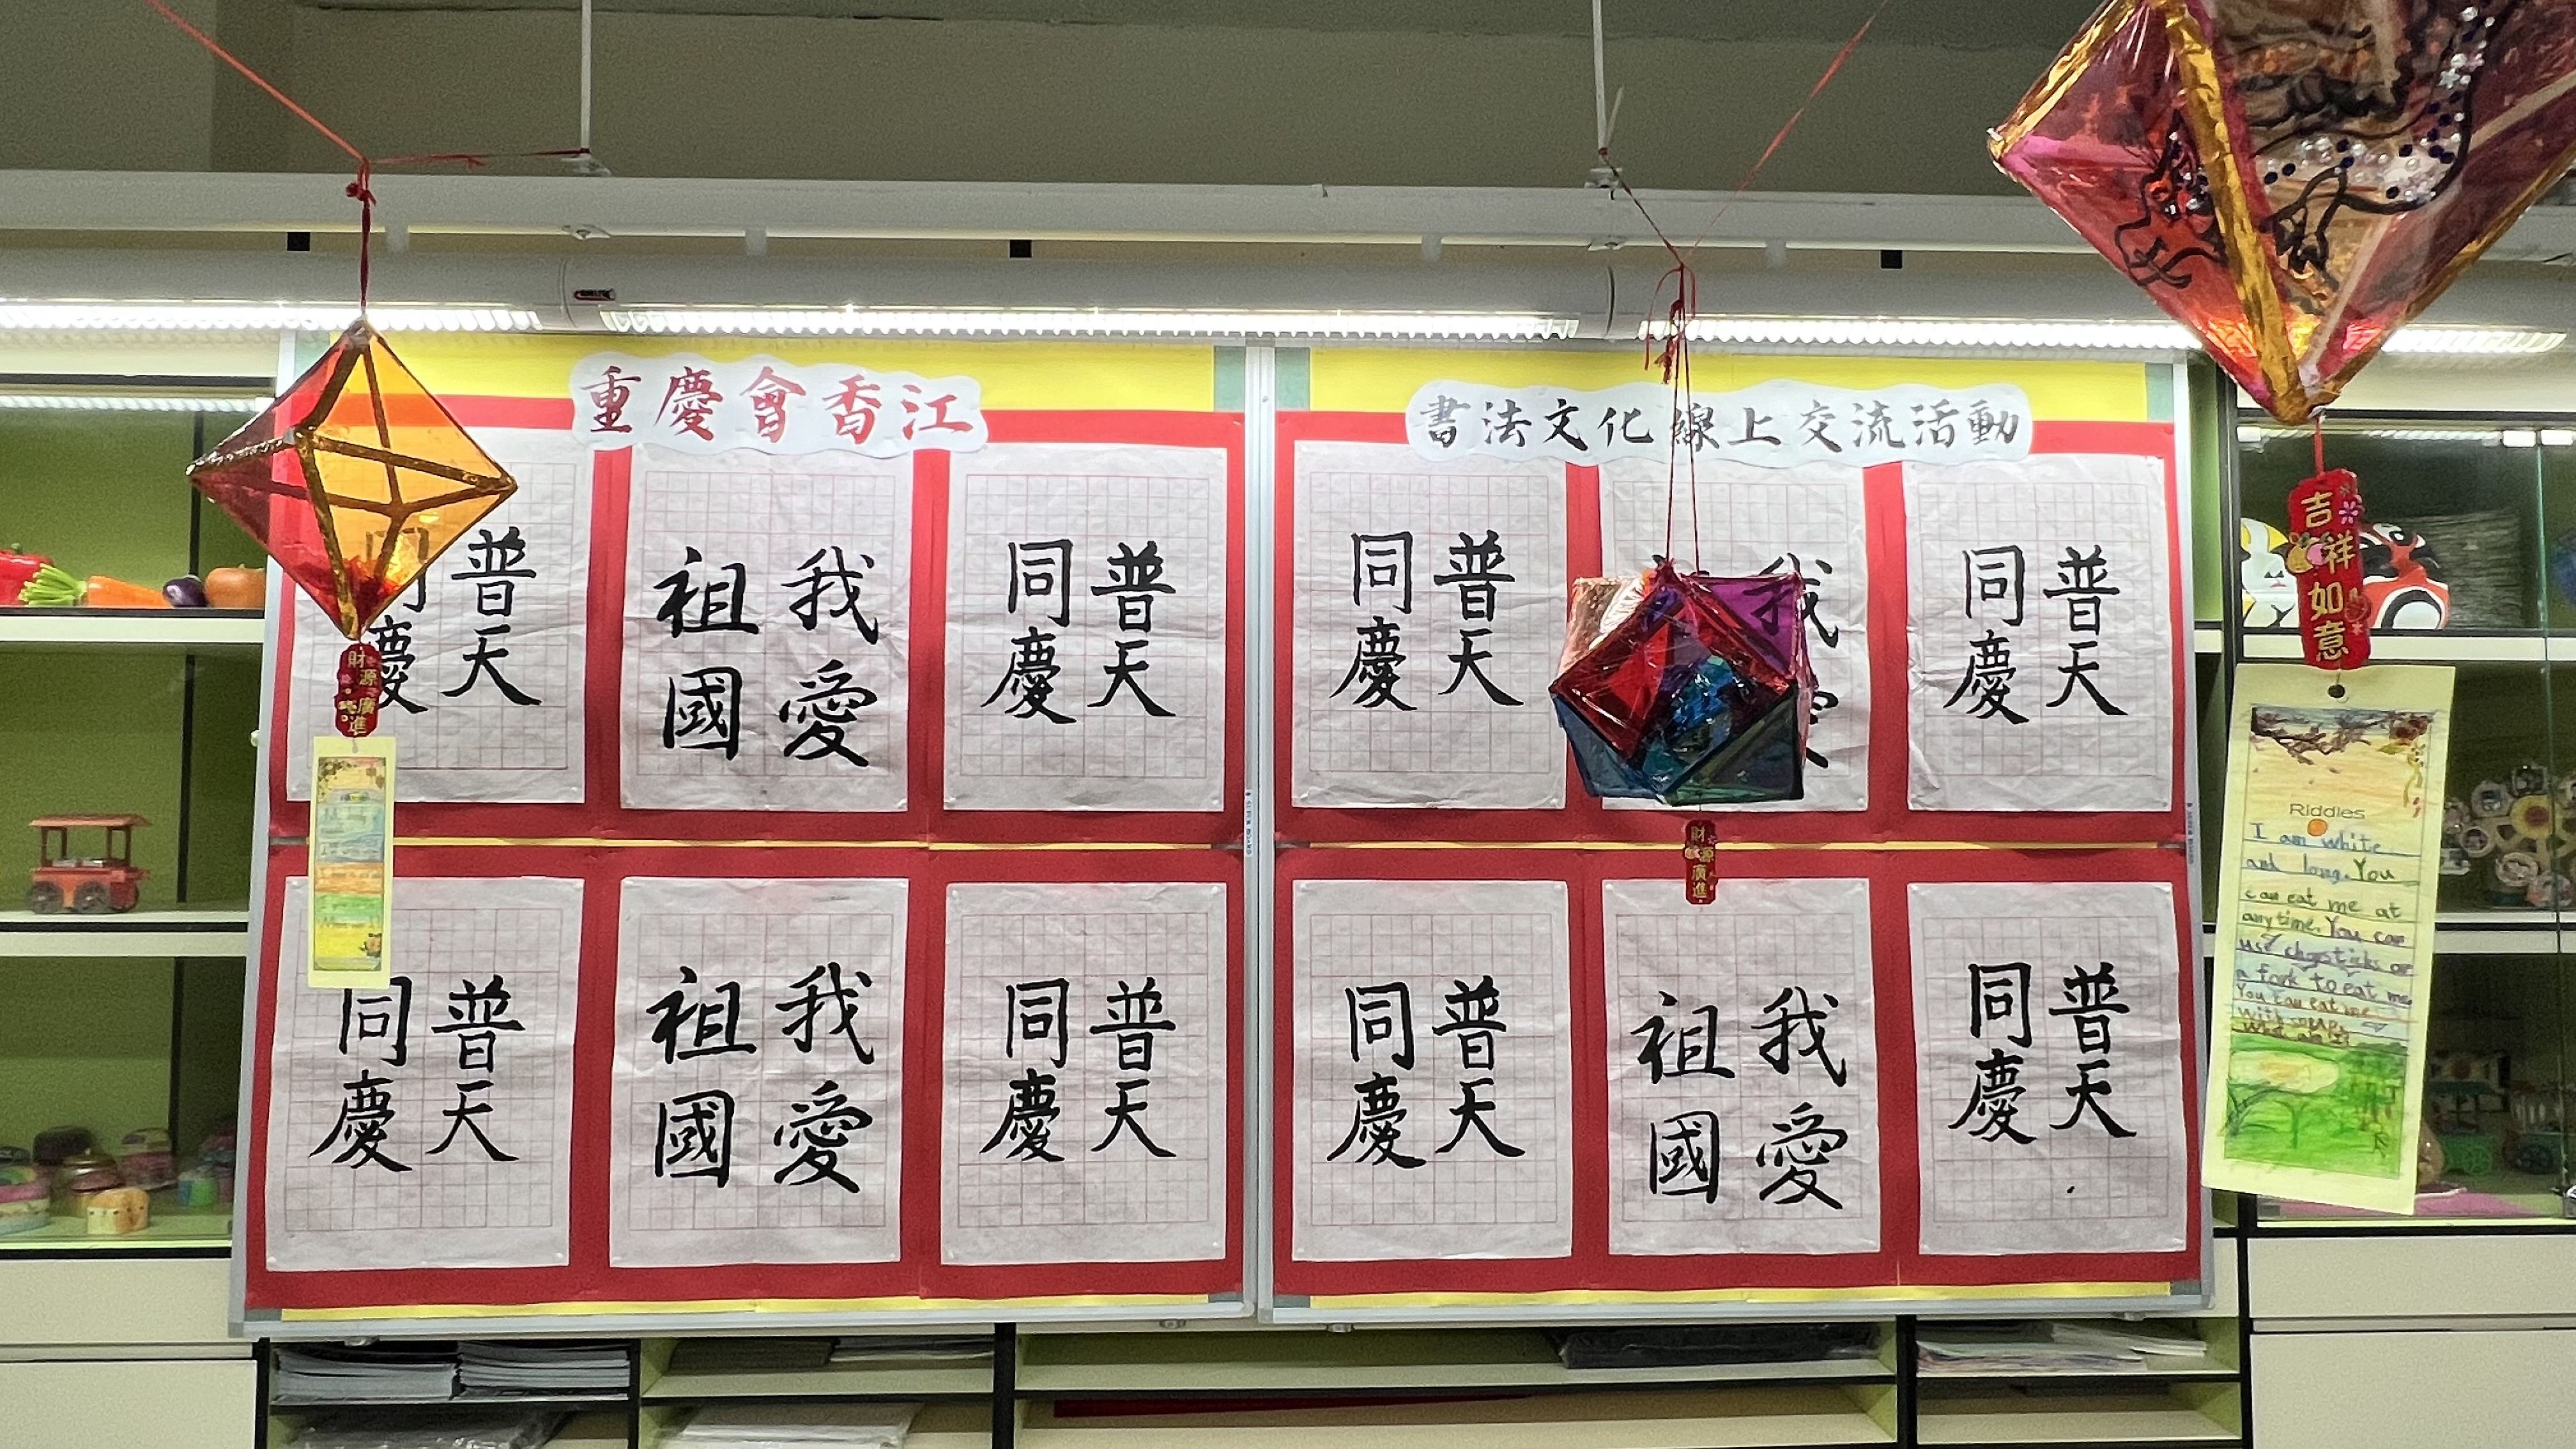 重慶會香江
書法文化線上交流活動
普天
慶
我愛
祖國
普天
同慶
普天
同慶
我
普天
同慶
普天
同慶
我愛
祖國
普天
同慶
普天
同慶
我愛
祖國
普天
同慶
財源廣進
財源廣進
吉祥如意
Riddles
I am white
and long. You
can eat me at
anytime. You can
use chopsticks or
a fork to eat me
You can eat me
with soup.
What am I?